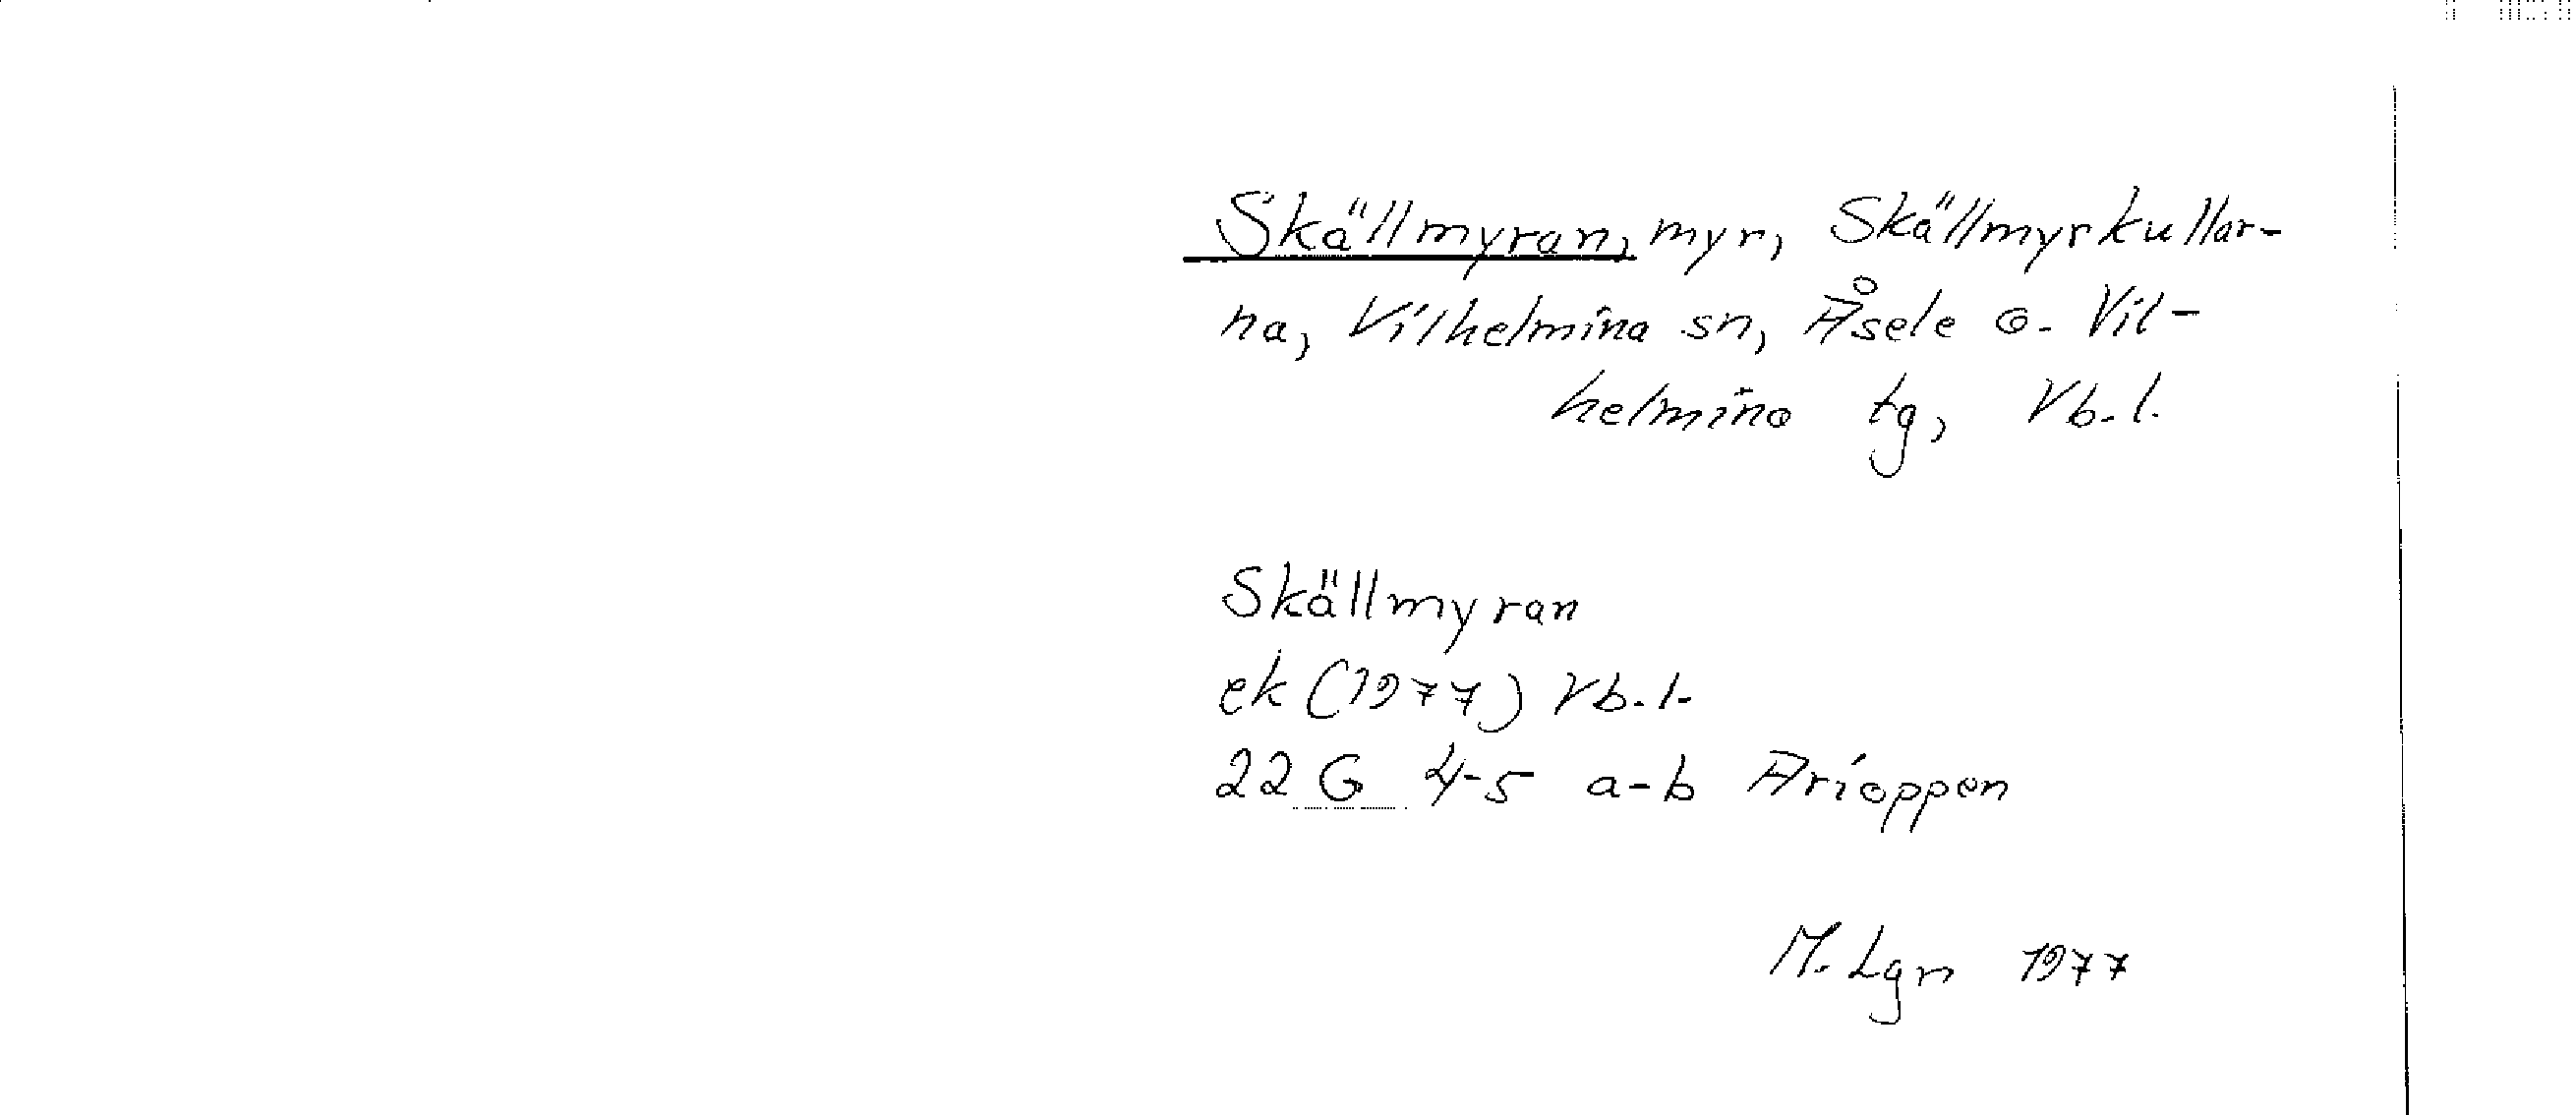 Skällmyran, myr, Skällmyrkullar-
na, Vilhelmina sn, Åsele o. Vil-
helmina tg, Vb.l.
Skällmyran
ek (1977) Vb.l.
22 G 4-5 a-b Arioppen
M. Lgn 1977